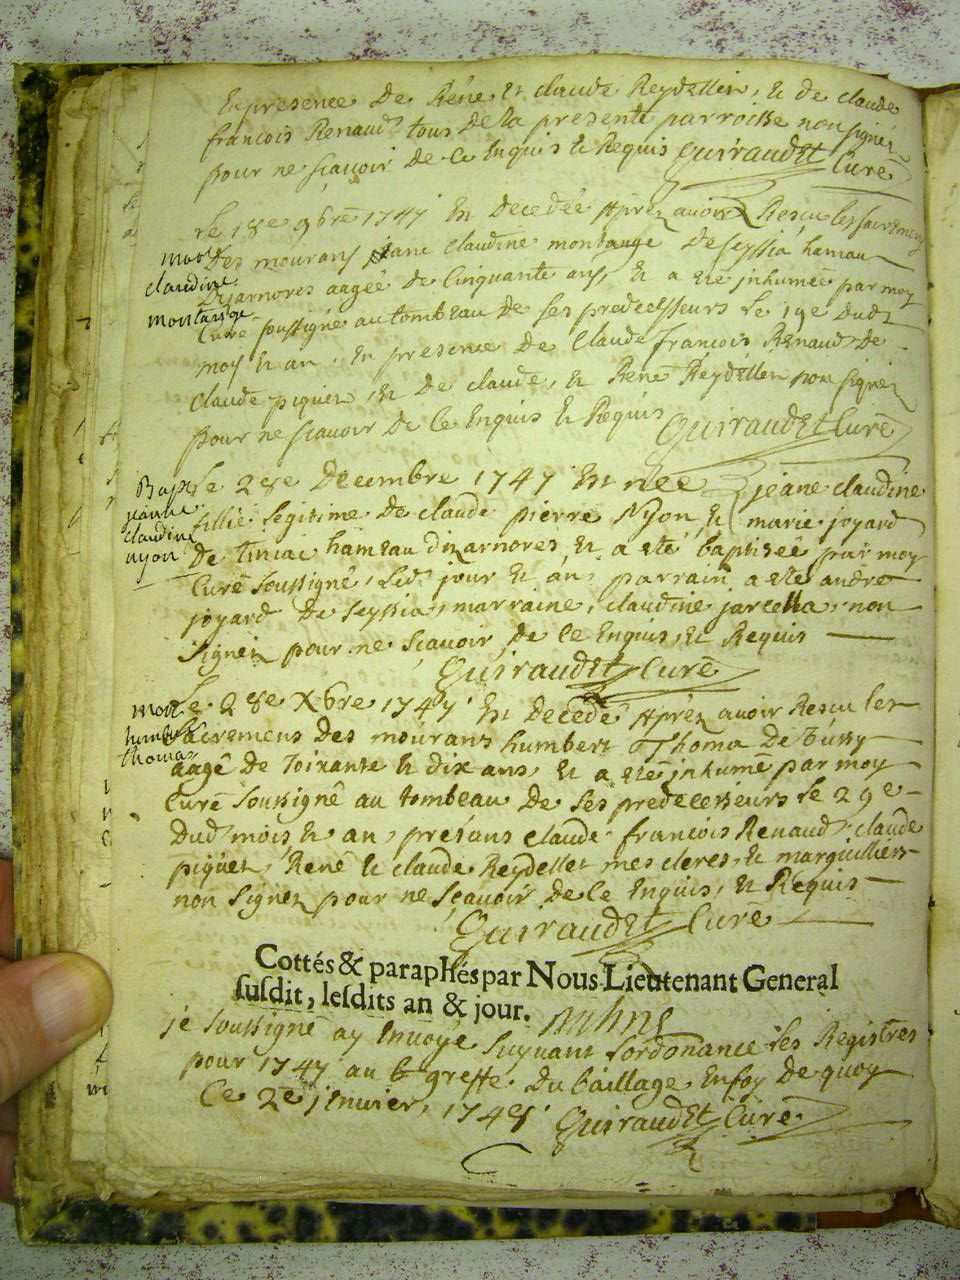 En presence De René Et claude Reydellet, Et de claude
francois Renaud tous De la presente parroisse non signéz
pour ne sçauoir de ce Enquis Et Requis Guiraudet Curé
Le 18e 9bre 1747 Est Decedée Aprez auoir Rescu les sacremens
Des mourans jane Claudine montange De seyssia hameau
Dizarnores aagée de Cinquante ans, Et a eté jnhumée par moy
Curé soussigné au tombeau De ses predecesseurs Le 19e Dudt
mois Et an, En presence De Claude francois Renaud De
Claude piquet, Et De claude, Et René Reydellet non signez
pour ne scauoir De Ce Enquis Et Requis Guiraudet Curé
mort
claudine
montange
Le 28e Decembre 1747 Est née jeane claudine
fillie Legitime De claude pierre Nyon, Et marie joyard
De tiniac hameau dizarnores, Et a eté baptisée par moy
Curé soussigné, Led. jour Et an, parrain a eté andré
joyard De seyssia, marraine, Claudine jarcella, non
signez pour ne sçauoir De Ce Enquis, Et Requis
Guiraudet Curé
Bapt
jeanne
claudine
nyon
Le 28e Xbre 1747 Est Decedé Aprez auoir Rescu les
sacremens Des mourans humbert Thoma De tussy
aagé De soixante Et dix ans, Et a eté jnhumé par moy
Curé soussigné au tombeau De ses predecesseurs le 29e
Dud mois Et an, presans Claude francois Renaud, claude
piquet, René Et claude Reydellet mes clercs, Et marguilliers
non signez pour ne sçauoir de Ce Enquis, Et Requis
Guiraudet Curé
mort
humbert
thomas
Cottés & paraphés par Nous Lieutenant General
susdit, lesdits an & jour.
je soussigné ay Enuoyé suyuant Lordonance Les Registres
pour 1747 au greffe Du baillage En foy De quoy
Ce 2e jenuier, 1748 Guiraudet Curé